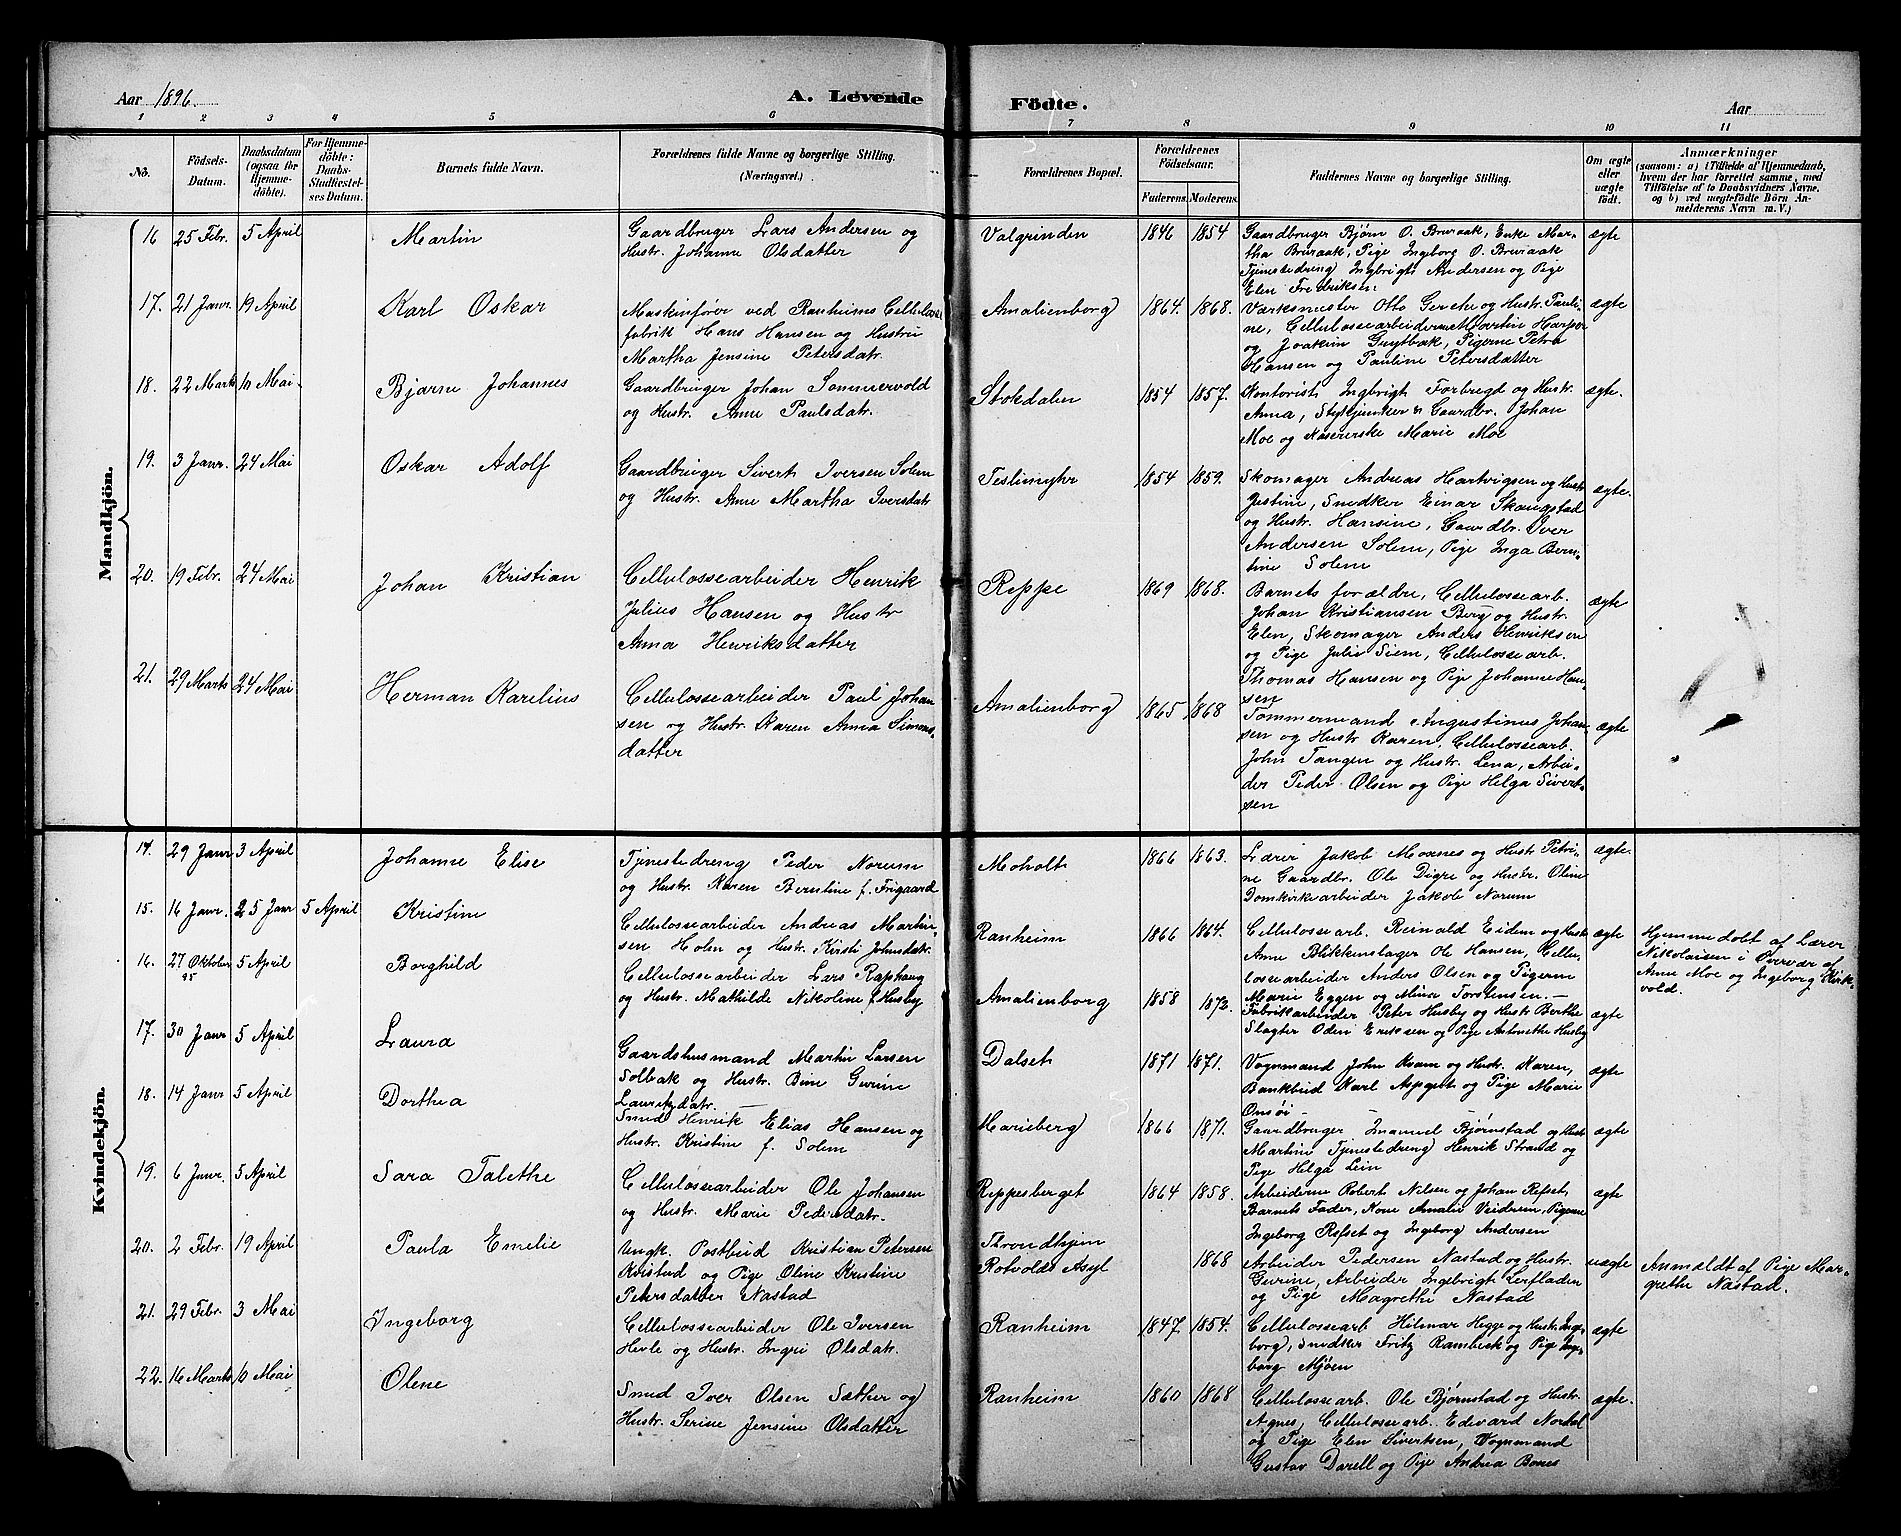 Aar 1896.
A. Levende
Födte.
Aar
1 2 3 4 5 6 7 8 9 10 11
No.
Födsels-
Datum.
Daabsdatum
(ogsaa for
Hjemme-
döbte).
For Hjemme-
döbte:
Daabs-
Stadfæstel-
ses Datum.
Barnets fulde Navn.
Forældrenes fulde Navne og borgerlige Stilling.
(Næringsvei.)
Forældrenes Bopæl.
Forældrenes
Födselsaar.
Faderens. Moderens.
Faddernes Navne og borgerlige Stilling.
Om ægte
eller
uægte
födt.
Anmærkninger
(saasom: a) i Tilfælde af Hjemmedaab,
hvem der har forrettet samme, med
Tilföielse af to Daabsvidners Navne.
og b) ved uægtefödte Börn An-
melderens Navn m. V.)
Mandkjön.
16 25 Febr. 5 April
Martin
Gaardbruger Lars Andersen og
Hustr. Johanne Olsdatter
Valgrinden
1846 1854
Gaardbruger Bjørn O. Bruraak, Enke Mar-
tha Bruraak, Pige Ingeborg O. Bruraak
Tjenestedreng Ingbrigt Andersen og Pige
Elen Fredriksen
ægte
17. 21 Janr. 19 April
Karl Oskar
Maskinfører ved Ranheims Cellulose
fabrik Hans Hansen og Hustru
Martha Jensine Petersdatr.
Amalienborg
1864. 1868.
Værksmester Otto Gereke og Hustr. Pauli-
ne, Cellulossearbeiderne Martin Harper
og Joakim Grytbak, Pigerne Petra
Hansen og Pauline Petersdatter
ægte
18. 22 Marts 10 Mai
Bjarne Johannes
Gaardbruger Johan Sommervold
og Hustr. Anne Paulsdatr.
Stokdalen
1854 1857.
Kontorist Ingbrigt Forbregd og Hustr.
Anna, Stykjunker og Gaardbr. Johan
Moe og Marie Moe
ægte.
19. 3 Janr. 24 Mai
Oskar Adolf
Gaardbruger Sivert Iversen Solem
og Hustr. Anne Martha Iversdatr
Teslimyhr
1854 1859.
Skomager Andreas Hartvigsen og Hustr
Justine, Snedker Einar Skaugstad
og Hustr. Hansine, Gaardbr. Iver
Andersen Solem, Pige Inga Bern-
tine Solem
ægte.
20. 19 Febr. 24 Mai
Johan Kristian
Cellulossearbeider Henrik
Julius Hansen og Hustr
Anna Henriksdatter
Reppe
1869 1868.
Barnets forældre, Cellulossearb.
Johan Kristiansen Berg og Hustr.
Elen, Skomager Anders Henriksen
og Pige Julie Siem, Cellulossearb.
Thomas Hansen og Pige Johanne Han-
sen
ægte
21. 29 Marts 24 Mai
Herman Karelius
Cellulossearbeider Paul Johan
sen og Hustr. Karen Anna Simons-
datter
Amalienborg
1865 1868
Tømmermand Augustinus Johan-
sen og Hustr Karen. Cellulossearb.
John Tangen og Hustr. Lena, Arbei-
der Peder Olsen og Pige Helga Sivert-
sen
ægte
Kvindekjön.
14. 29 Janr 3 April
Johanne Elise
Tjenestedreng Peder Norum
og Hustr. Karen Berntine f. Frigaard
Moholt
1866 1863.
Lærer Jakob Moxnes og Hustr Petri-
ne Gaardbr. Ole Digre og Hustr. Oline
Domkirkearbeider Jakob Norum
ægte.
15. 16 Janr. 25 Janr 5 April
Kristine
Cellulossearbeider Andreas Martin-
sen Holm og Hustr. Kirsti Johnsdatr.
Ranheim
1866 1864.
Cellulossearb. Reinald Eidem og Hustr
Anne Blikkenslager Ole Hansen, Cellu-
lossearbeider Anders Olsen og Pigerne
Marie Eggen og Mina Torstensen.
ægte
Hjemmedøbt af Lærer
Nikolaisen i Overvær af
Anne Moe og Ingeborg Kirk-
vold.
16. 27 Oktober 95 5 April
Borghild
Cellulossearbeider Lars Raphaug
og Hustr. Mathilde Nikoline f. Husby
Amalienborg
1858 1872.
Fabrikarbeider Peter Husby og Hustr Berthe
Slagter Odin Eriksen og Pige Antonette Husby
ægte
17. 30 Janr 5 April
Laura
Gaardshusmand Martin Larsen
Solbak og Hustr. Bine Gurine
Lauritzdatr.
Dalset
1871 1871.
Vognmand John Kvam og Hustr. Karen,
Bankbud Karl Aspget og Pige Marie
Onsøi
ægte
18. 14 Janr 5 April
Dorthea
Smed Henrik Elias Hansen og
Hustr. Kristine f. Solem
Marieberg
1866 1871.
Gaardbruger Imanuel Bjørnstad og Hustr
Martine Tjenestedreng Henrik Strand og
Pige Helga Lein
ægte
19. 6 Janr. 5 April
Sara Talethe
Cellulossearbeider Ole Johansen
og Hustr. Marie Pedersdatr.
Reppesberget
1864 1858.
Arbeiderne Robert Nilsen og Johan Refset,
Barnets Fader, Kone Amalie Veiderem, Pigerne
Ingeborg Refset og Ingeborg Andersen
ægte
20. 2 Febr. 19 April
Paula Emelie
Ungk. Postbud Kristian Petersen
Kvistad og Pige Oline Kristine
Petersdatter Nastad
Throndhjem
Rotvolds Asyl
1868
Arbeider Pedersen Nastad og Hustr.
Gurine, Arbeider Ingebrigt Leifladen
og Pige Magrethe Nastad
uægte
Anmeldt af Pige Mar-
grethe Nastad.
21. 29 Febr. 3 Mai
Ingeborg
Cellulossearbeider Ole Iversen
Hevle og Hustr. Ingri Olsdatr.
Ranheim
1847 1854.
Cellulossearb Hilmar Hegge og Hustr. Inge-
borg, Snedker Fritz Rambæk og Pige Inge-
borg Mjøen
ægte
22. 16 Marts 10 Mai
Olene
Smed Iver Olsen Sæther og
Hustr. Serine Jensine Olsdatter
Ranheim
1860 1868
Cellulossearb. Ole Bjørnstad og Hustr.
Agnes, Cellulossearb. Edevard Nordal
og Pige Elen Sivertsen, Vognmand
Gustav Darell og Pige Andrea Bones
ægte.